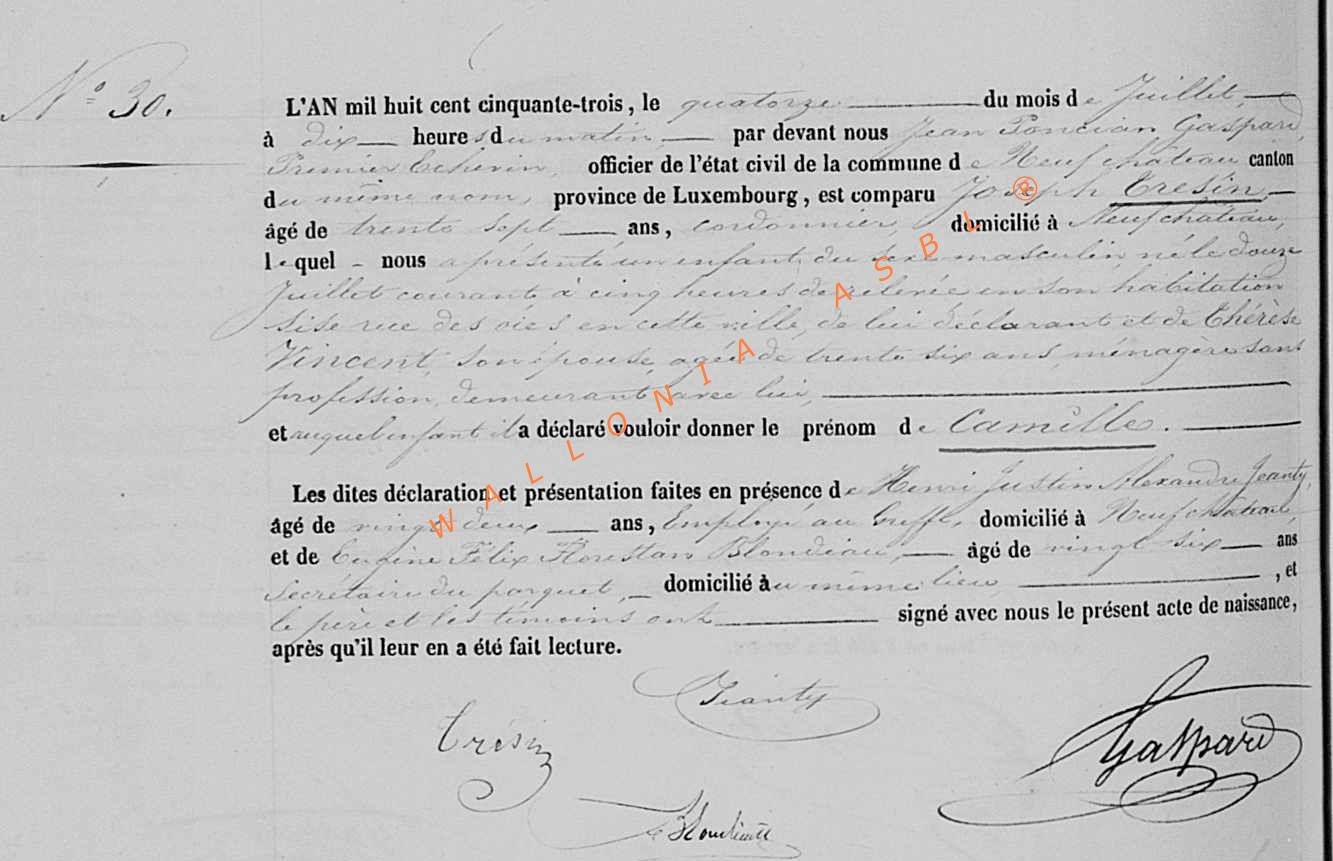 N° 30.
L'AN mil huit cent cinquante-trois, le quatorze du mois de Juillet,
à dix heures du matin par devant nous Jean Poncian Gaspard,
Premier Echevin, officier de l'état civil de la commune de Neufchâteau canton
du même nom, province de Luxembourg, est comparu Joseph Tresin
âgé de trente sept ans, cordonnier, domicilié à Neufchâteau,
lequel nous a présenté un enfant du sexe masculin, né le douze
Juillet courant à cinq heures de relevée en son habitation
sise rue des en cette ville, de lui déclarant et de Thérèse
Vincent, son épouse, agée de trente six ans, ménagère sans
profession, demeurant avec lui,
et auquel enfant il a déclaré vouloir donner le prénom de Camille.
Les dites déclaration et présentation faites en présence de Henri Justin Alexandre Jeanty,
âgé de vingt deux ans, Employé au Greffe, domicilié à Neufchâteau,
et de Eugène Félix Florestan Blondiau, âgé de vingt six ans
Secrétaire du parquet, domicilié au même lieu, , et
le père et les témoins ont signé avec nous le présent acte de naissance,
après qu'il leur en a été fait lecture.
Jeanty
Trésin
Gaspard
Blondiau
WALLONIA ASBL ®